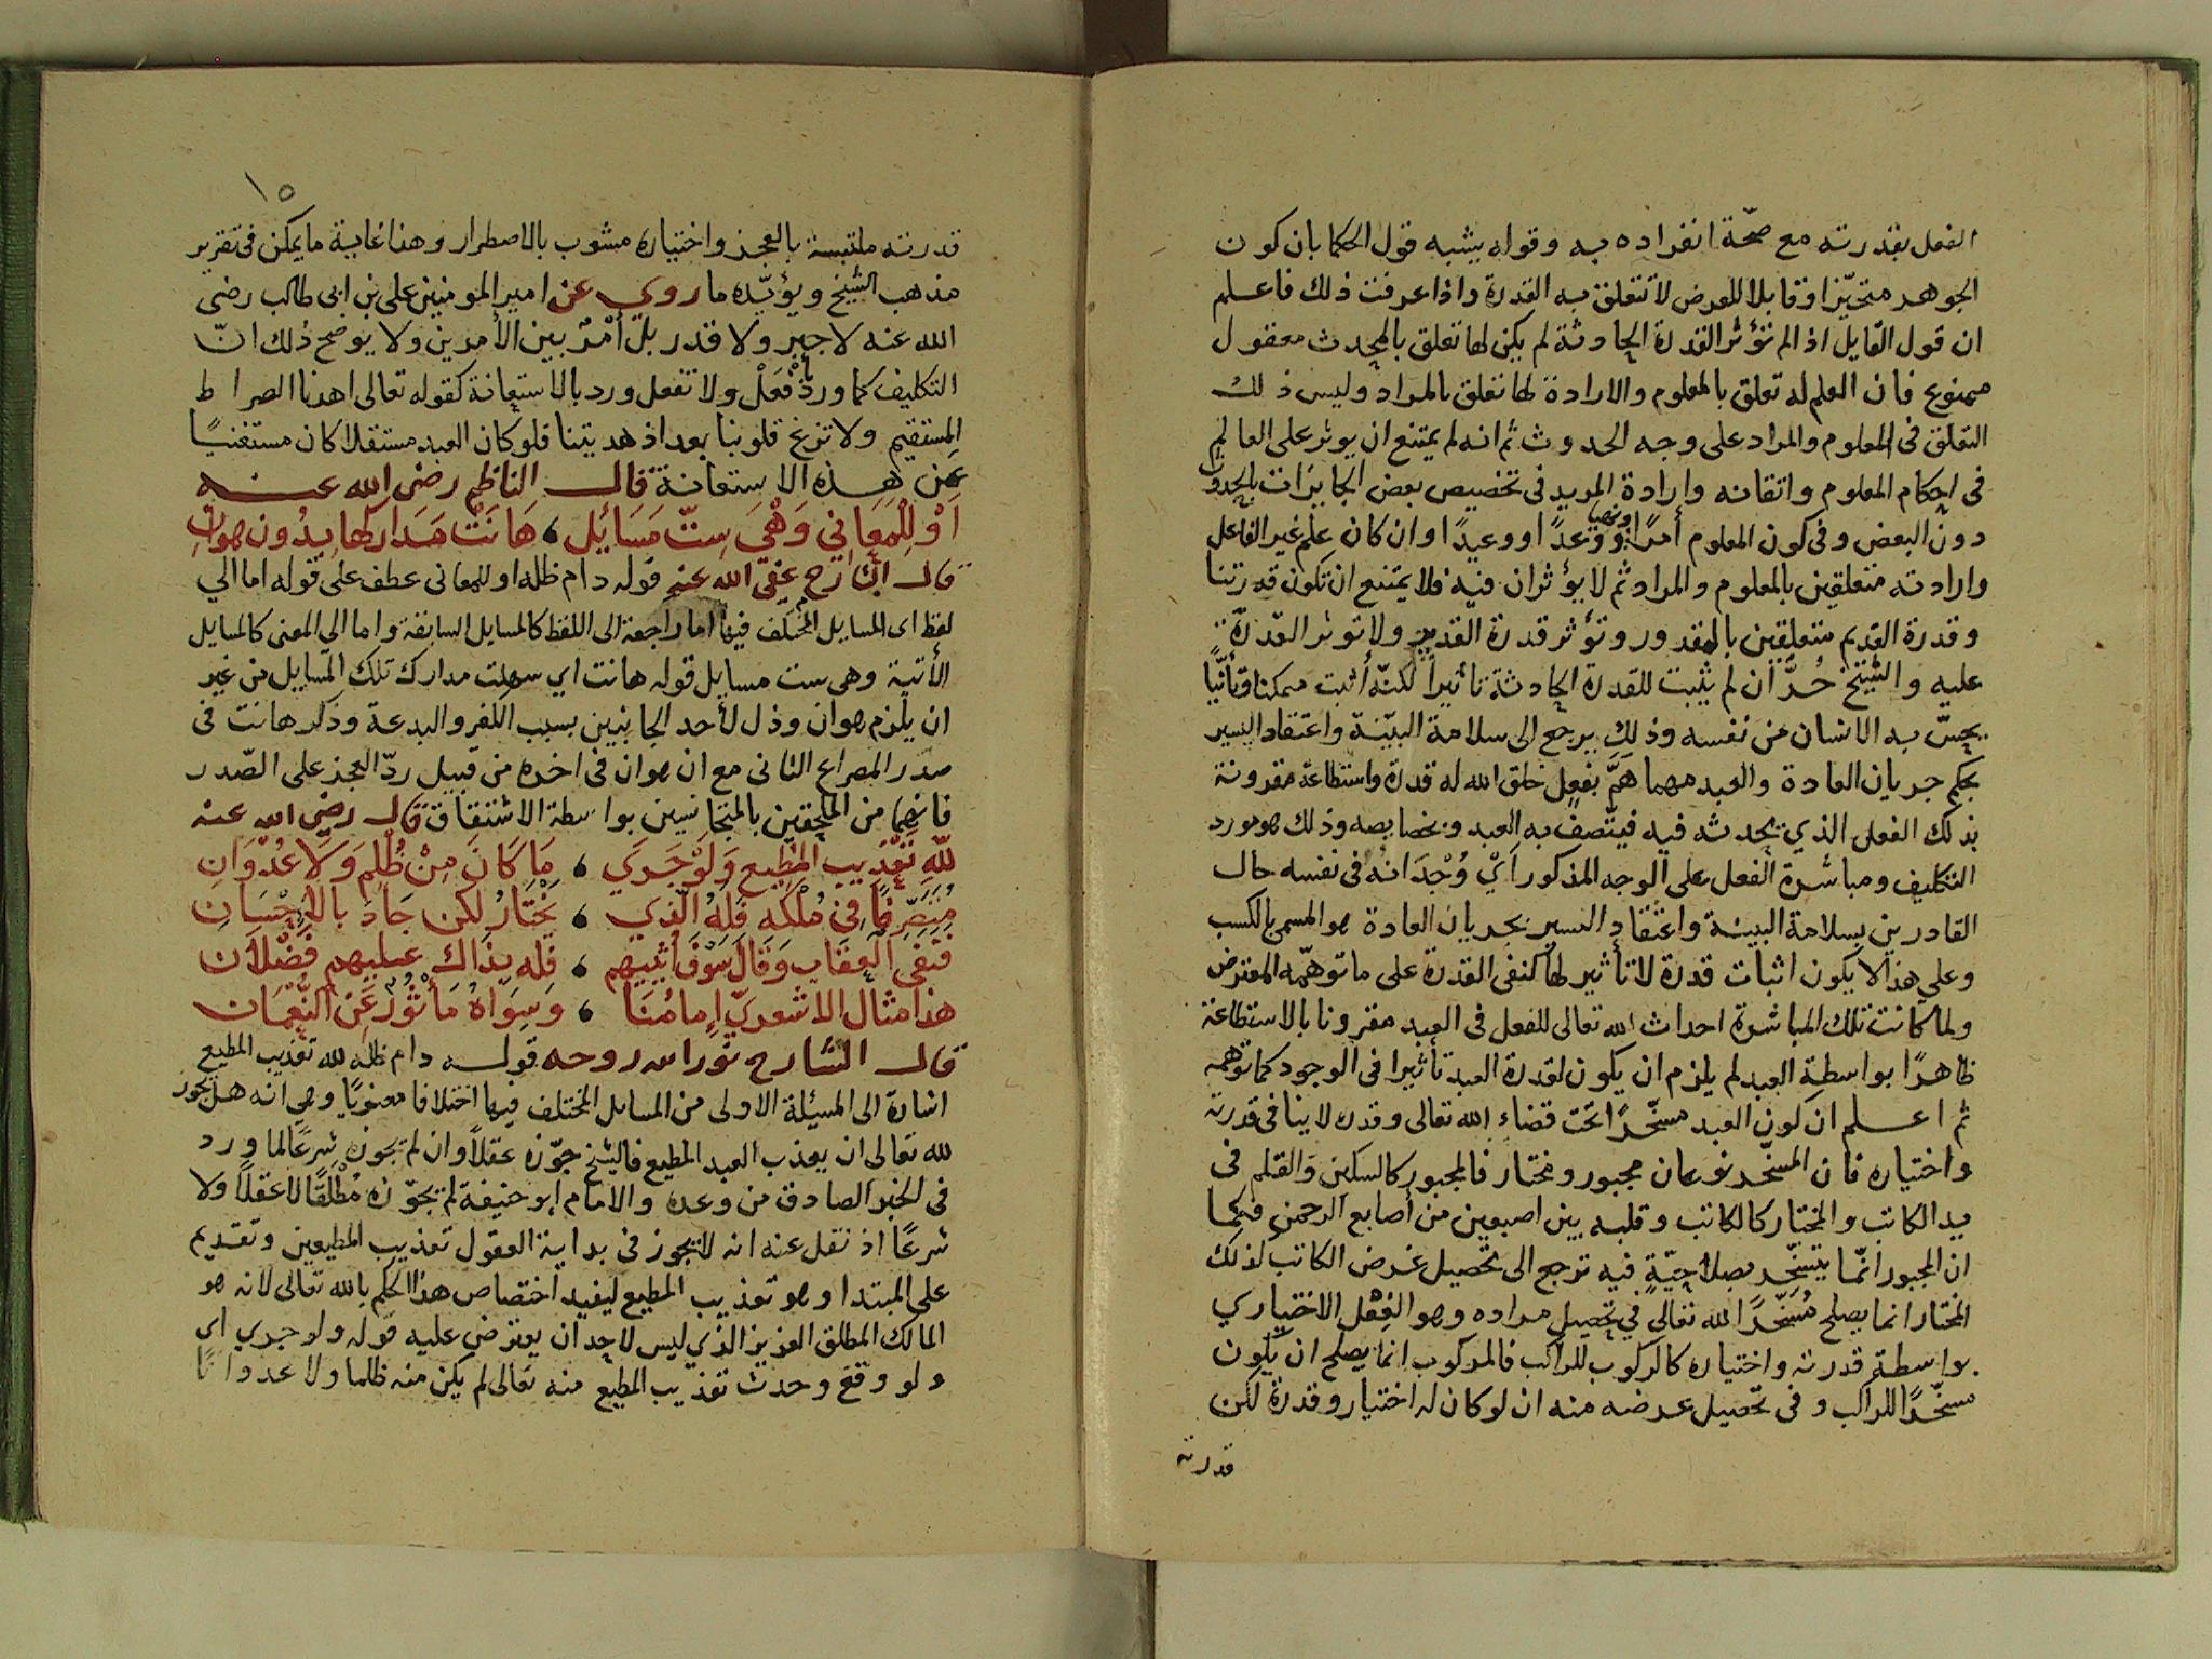 الفعل بقدرته مع صحّة انفراده به وقوله يشبه قول الحكما بان كون
الجوهر متحيّزا وقابلا للعرض لا تتعلق به القدرة واذا عرفت ذلك فاعلم
ان قول القايل اذ الم تؤثر القدرة الحادثة لم يكن لها تعلق بالمحدث معقول
ممنوع فان العلم له تعلق بالمعلوم والارادة لها تعلق بالمراد وليس ذلك
التعلق فى المعلوم والمراد على وجه الحدوث ثم انه لم يمتنع ان يوثر على العالم
فى احكام المعلوم واتقانه وارادة المريد فى تخصيص بعض الجايزات بالحدوث
دون البعض وفى كون المعلوم أمرًا ونهيا ووعدًا او وعيدًا وان كان علم غير الفاعل
وارادته متعلقين بالمعلوم والمراد ثم لا يؤثران فيه فلا يمتنع ان تكون قدرتنا
وقدرة القديم متعلقين بالمقدور وتؤثر قدرة القديم ولا توثر القدرة
عليه والشيخ وان لم يثبت للقدرة الحادثة تاثيرا لكنّه أثبت ممكنا وتأتّيًا
يحسّ به الانسان من نفسه وذلك يرجع الى سلامة البيّنة واعتقاد اليسير
بحكم جريان العادة والعبد مهما همَّ بفعل خلق الله له قدرة واستطاعة مقرونة
بذلك الفعل الذي يحدثه فيه فيتّصف به العبد وبخصايصه وذلك هو مورد
التكليف ومباشرة الفعل على الوجه المذكور أيْ وُجْدَانه فى نفسه حال
القادرين بسلامة البينة واعتقاد اليسير بجريان العادة هو المسمى بالكسب
وعلى هذا لا يكون اثبات قدرة لا تأثير لها كنفى القدرة على ما توهّمه المعترض
ولما كانت تلك المباشرة احداث الله تعالى للفعل فى العبد مقرونا بالاستطاعة
ظاهرًا بواسطة العبد لم يلزم ان يكون لقدرة العبد تأثيرا فى الوجود كما توهمه
ثم اعلم ان كون العبد مسخّرًا تحت قضاء الله تعالى وقدره لا ينافى قدرته
واختياره فان المسخّر نوعان مجبور ومختار فالمجبور كالسكين والقلم فى
يد الكاتب والمختار كالكاتب وقلبه بين اصبعين من أصابع الرحمن فكما
ان المجبور انّما يتسخّر بصلاحيّةٍ فيه ترجع الى تحصيل غرض الكاتب لذلك
المختار انما يصلح مُسَخّرًا لله تعالى في تحصيل مراده وهو الفِعْل الاختياري
بواسطة قدرته واختياره كالركوب للراكب فالمركوب انما يصلح ان يكون
مسخّرًا للراكب وفى تحصيل غرضه منه ان لو كان له اختيار وقدرة لكن
قدرته
١٥
قدرته ملتبسة بالعجز واختياره مشوب بالاضطرار وهذا غاية ما يمكن فى تقرير
مذهب الشيخ ويؤيّده ما روي عن امير المومنين على بن ابى طالب رضى
الله عنه لا جبر ولا قدر بل أمْرٌ بين الأمرين ولا يوضح ذلك انّ
التكليف كما ورد بافْعَلْ ولا تفعل ورد بالاستعانة كقوله تعالى اهدنا الصراط
المستقيم ولا تزغ قلوبنا بعد اذ هديتنا فلو كان العبد مستقلا كان مستغنيًا
عن هذه الاستعانة قال الناظم رضى الله عنه
أوْ لِلْمَعَانِي وَهْيَ سِتّ مَسَائِل ، هَانَتْ مَدَارِكُها بِدُون هوانِ
قال الشارح عفى الله عنه قوله دام ظله او للمعانى عطف على قوله اما الي
لفظ اى المسايل المختلف فيها اما راجعة الى اللفظ كالمسايل السابقة واما الى المعنى كالمسايل
الأتية وهى ست مسايل قوله هانت اي سهلت مدارك تلك المسايل من غير
ان يلزم هوان وذل لأحد الجانبين بسبب الكفر والبدعة وذكر هانت فى
صدر المصراع الثانى مع ان هوان فى اخره من قبيل ردّ العجز على الصّدر
فانهما من الملحقين بالمتجانسين بواسطة الاشتقاق قال رضى الله عنه
للّهِ تَعْذِيب المُطِيع وَلَوْ جَرَي ، مَا كَانَ مِنْ ظُلم وَلا عُدْوَانِ
مُتَصَرِّفًا فى مُلْكِه فَلَهُ الّذي ، يَخْتَارُ لكن جَادَ بالإحْسَانِ
فَنَفي العِقَاب وَقَالَ سَوْفَ أثيبُهم ، فَله بِذَاك عليهم فَضْلانِ
هذا مثال الاشعريّ إمامُنَا ، وَسِوَاهُ مَأثُورٌ عَنِ النُّعْمَانِ
قال الشارح نور الله روحه قوله دام ظله لله تعذيب المطيع
اشارة الى المسئلة الاولى من المسايل المختلف فيها اختلافا معنويًا وهي انه هل يجوز
لله تعالى ان يعذب العبد المطيع فالشيخ جوّزه عقلاً وان لم يجوزه شرعًا لما ورد
فى الخبر الصادق من وعده والامام ابو حنيفة لم يجوّزه مُطْلَقًا لا عقلاً ولا
شرعًا اذ نقل عنه انه لا يجوز فى بداية العقول تعذيب المطيعين وتقديم
على المبتدا وهو تعذيب المطيع ليفيد اختصاص هذا الحكم بالله تعالى لانه هو
المالك المطلق العزيز الذي ليس لاحد ان يعترض عليه قوله ولو جري اي
ولو وقع وحدث تعذيب المطيع منه تعالى لم يكن منه ظلما ولا عدوانًا